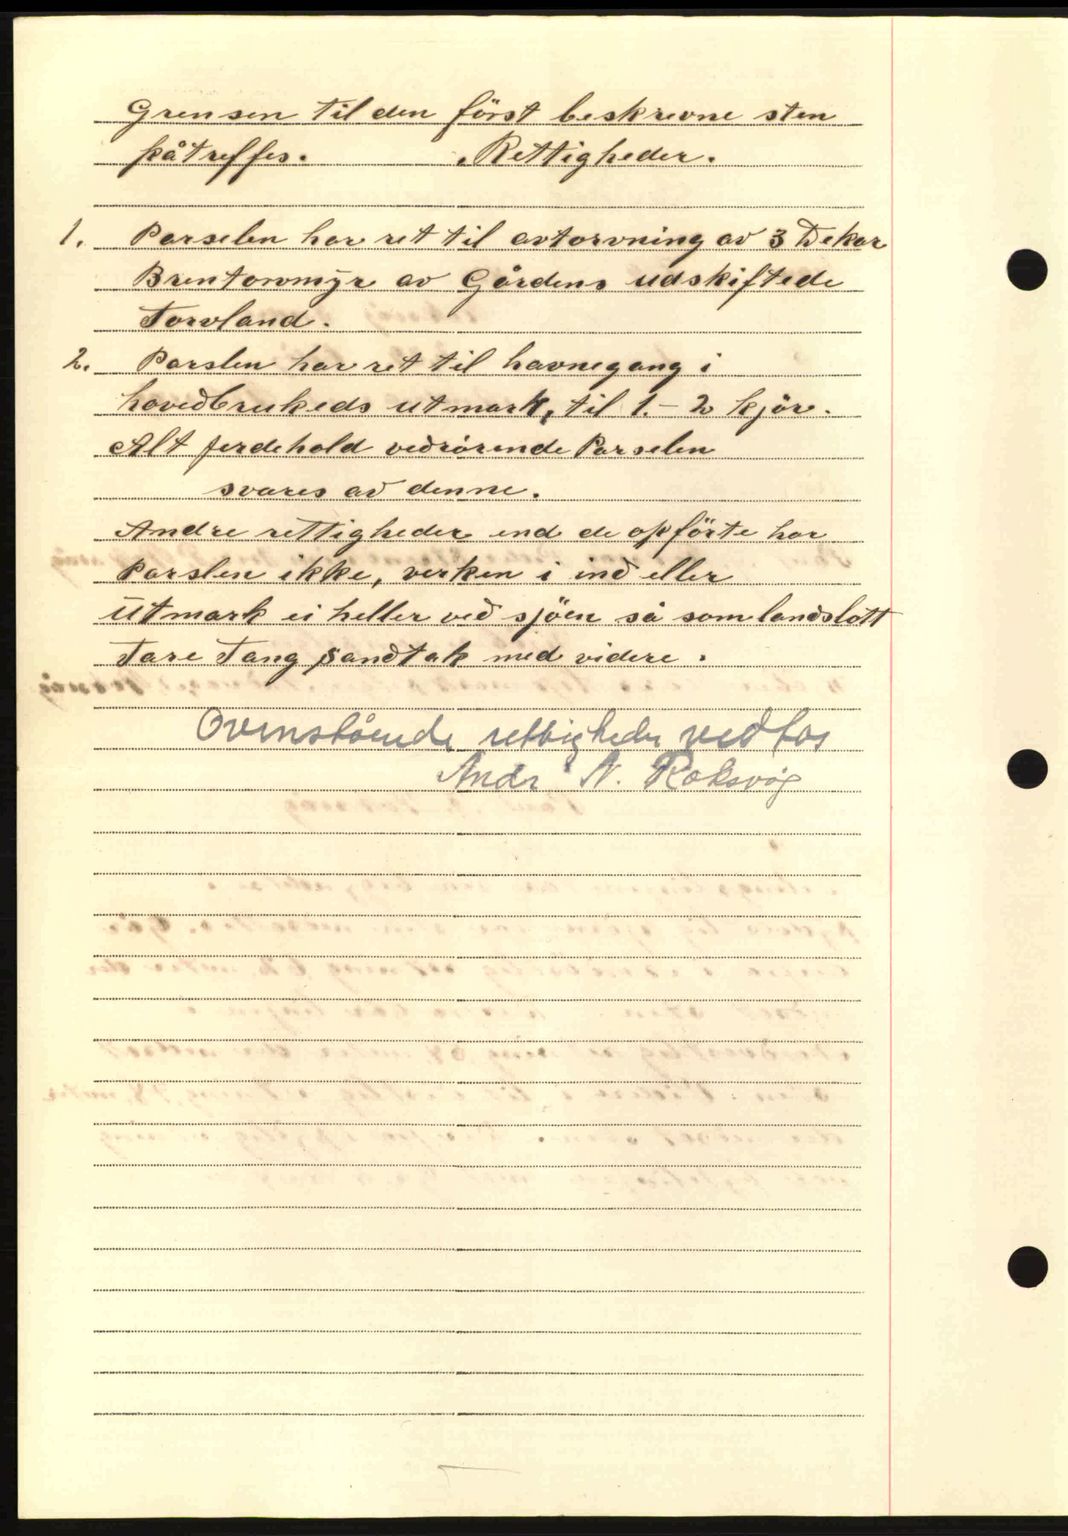 Grensen til den först beskrevne sten
påtreffes. Rettigheder.
1. Parselen har ret til avtorvning av 3 Dekar
Brentorvmyr av Gårdens udskiftede
Torvland.
2. Parslen har ret til havnegang i
hovedbrukeds utmark, til 1.-2 kjör.
Alt jerdehold vedrörende Parselen
svares av denne.
Andre rettigheder end de opförte har
Parslen ikke, verken i ind eller
utmark ei heller ved sjöen så som landslott
Tare Tang sandtak med videre.
Ovenstående rettigheder vedtas
Andr. N. Roksvåg